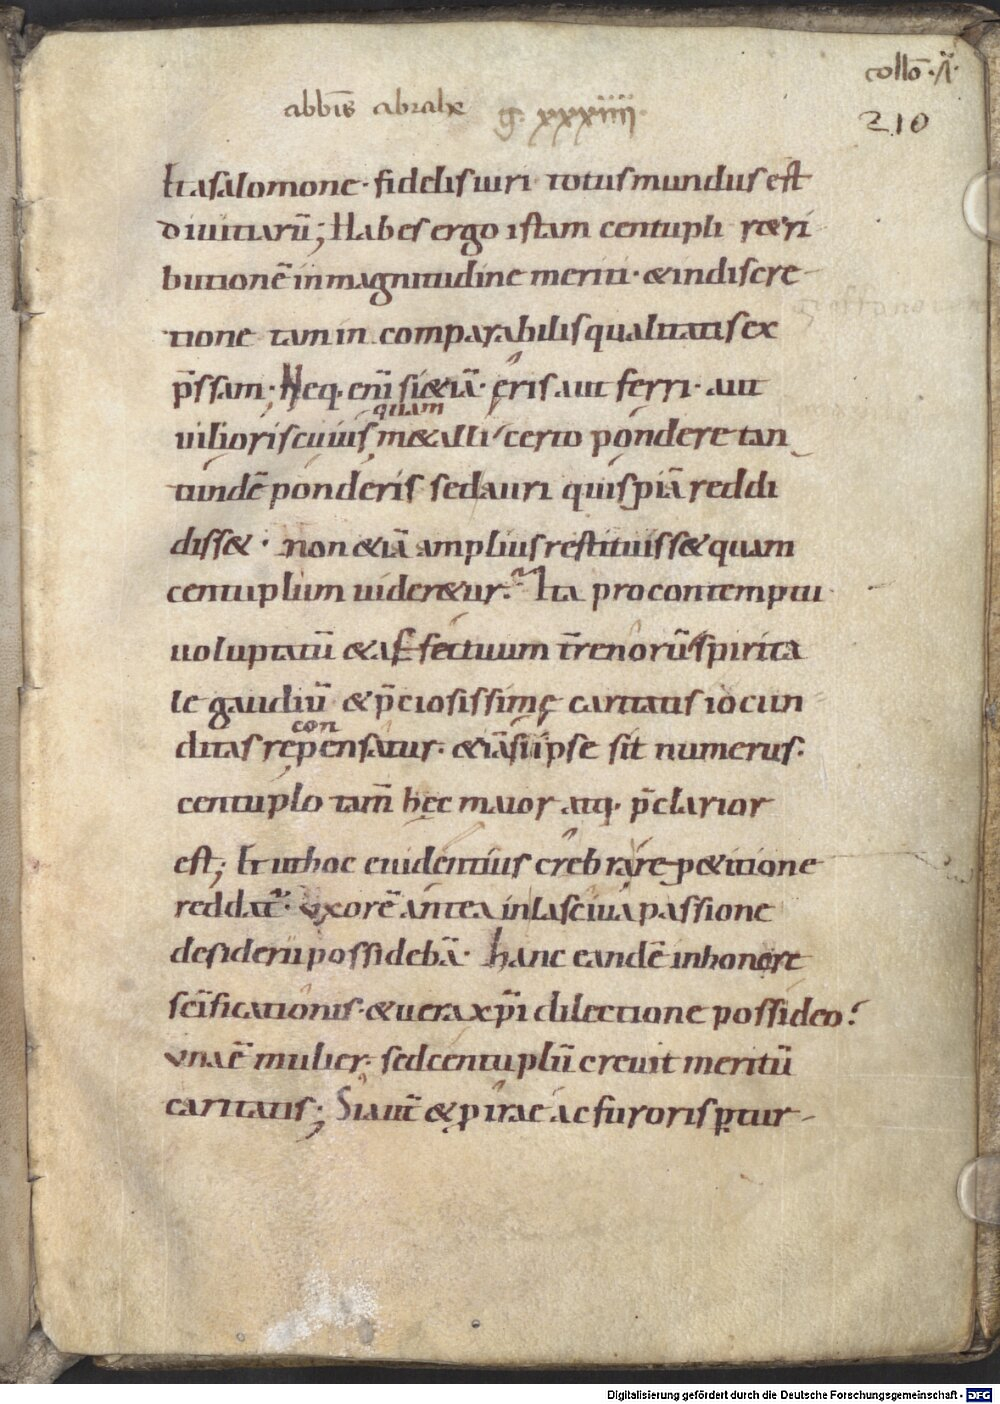 collō · A ·
abbīs abrahę g. xxxiiii.
210
Et a salomone · fidelis uiri totus mundus est
diuitiarū; Habes ergo istam centupli r&ri
butionē in magnitudine meriti · & in discre-
tione tam in comparabilis qualitatis ex
p̄ssam · Neq. enī si &iā · ęris aut ferri · aut
uilioris cuiuis quam m&alli certo pondere tan
tundē ponderis sed auri quispiā reddi
diss& · non &iā amplius restituiss& quam
centuplum uider&ur. Ita pro contemptu
uoluptatū & affectuum t̄renorū spirita
le gaudiū & p̄ciosissimę caritatis iocun
ditas repensatur con · &iāsi ipse sit numerus ·
centuplo tam̄ hęc maior atq. p̄clarior
est; Et ut hoc euidentius crebra re p&itione
reddat̄ · Vxorē antea in lasciua passione
desiderii possidebā · hanc eandē in honore
sc̄ificationis · & uera xp̄i dilectione possideo?
Vna ē mulier · sed centuplū creuit meritū
caritatis; Si aut̄ & p irae ac furoris ptur-
Digitalisierung gefördert durch die Deutsche Forschungsgemeinschaft - DFG